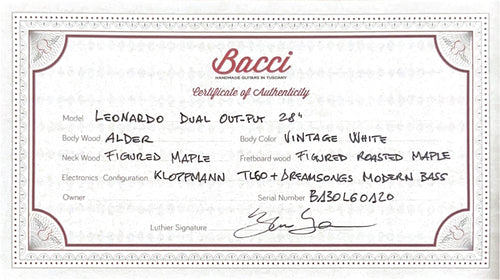 Bacci
HANDMADE GUITARS IN TUSCANY
Certificate of Authenticity
Model LEONARDO DUAL OUTPUT 28"
Body Wood ALDER Body Color VINTAGE WHITE
Neck Wood FIGURED MAPLE Fretboard wood FIGURED ROASTED MAPLE
Electronics Configuration KLOPPMANN TL60 + DREAMSONGS MODERN BASS
Owner Serial Number BA30L60A20
Luthier Signature